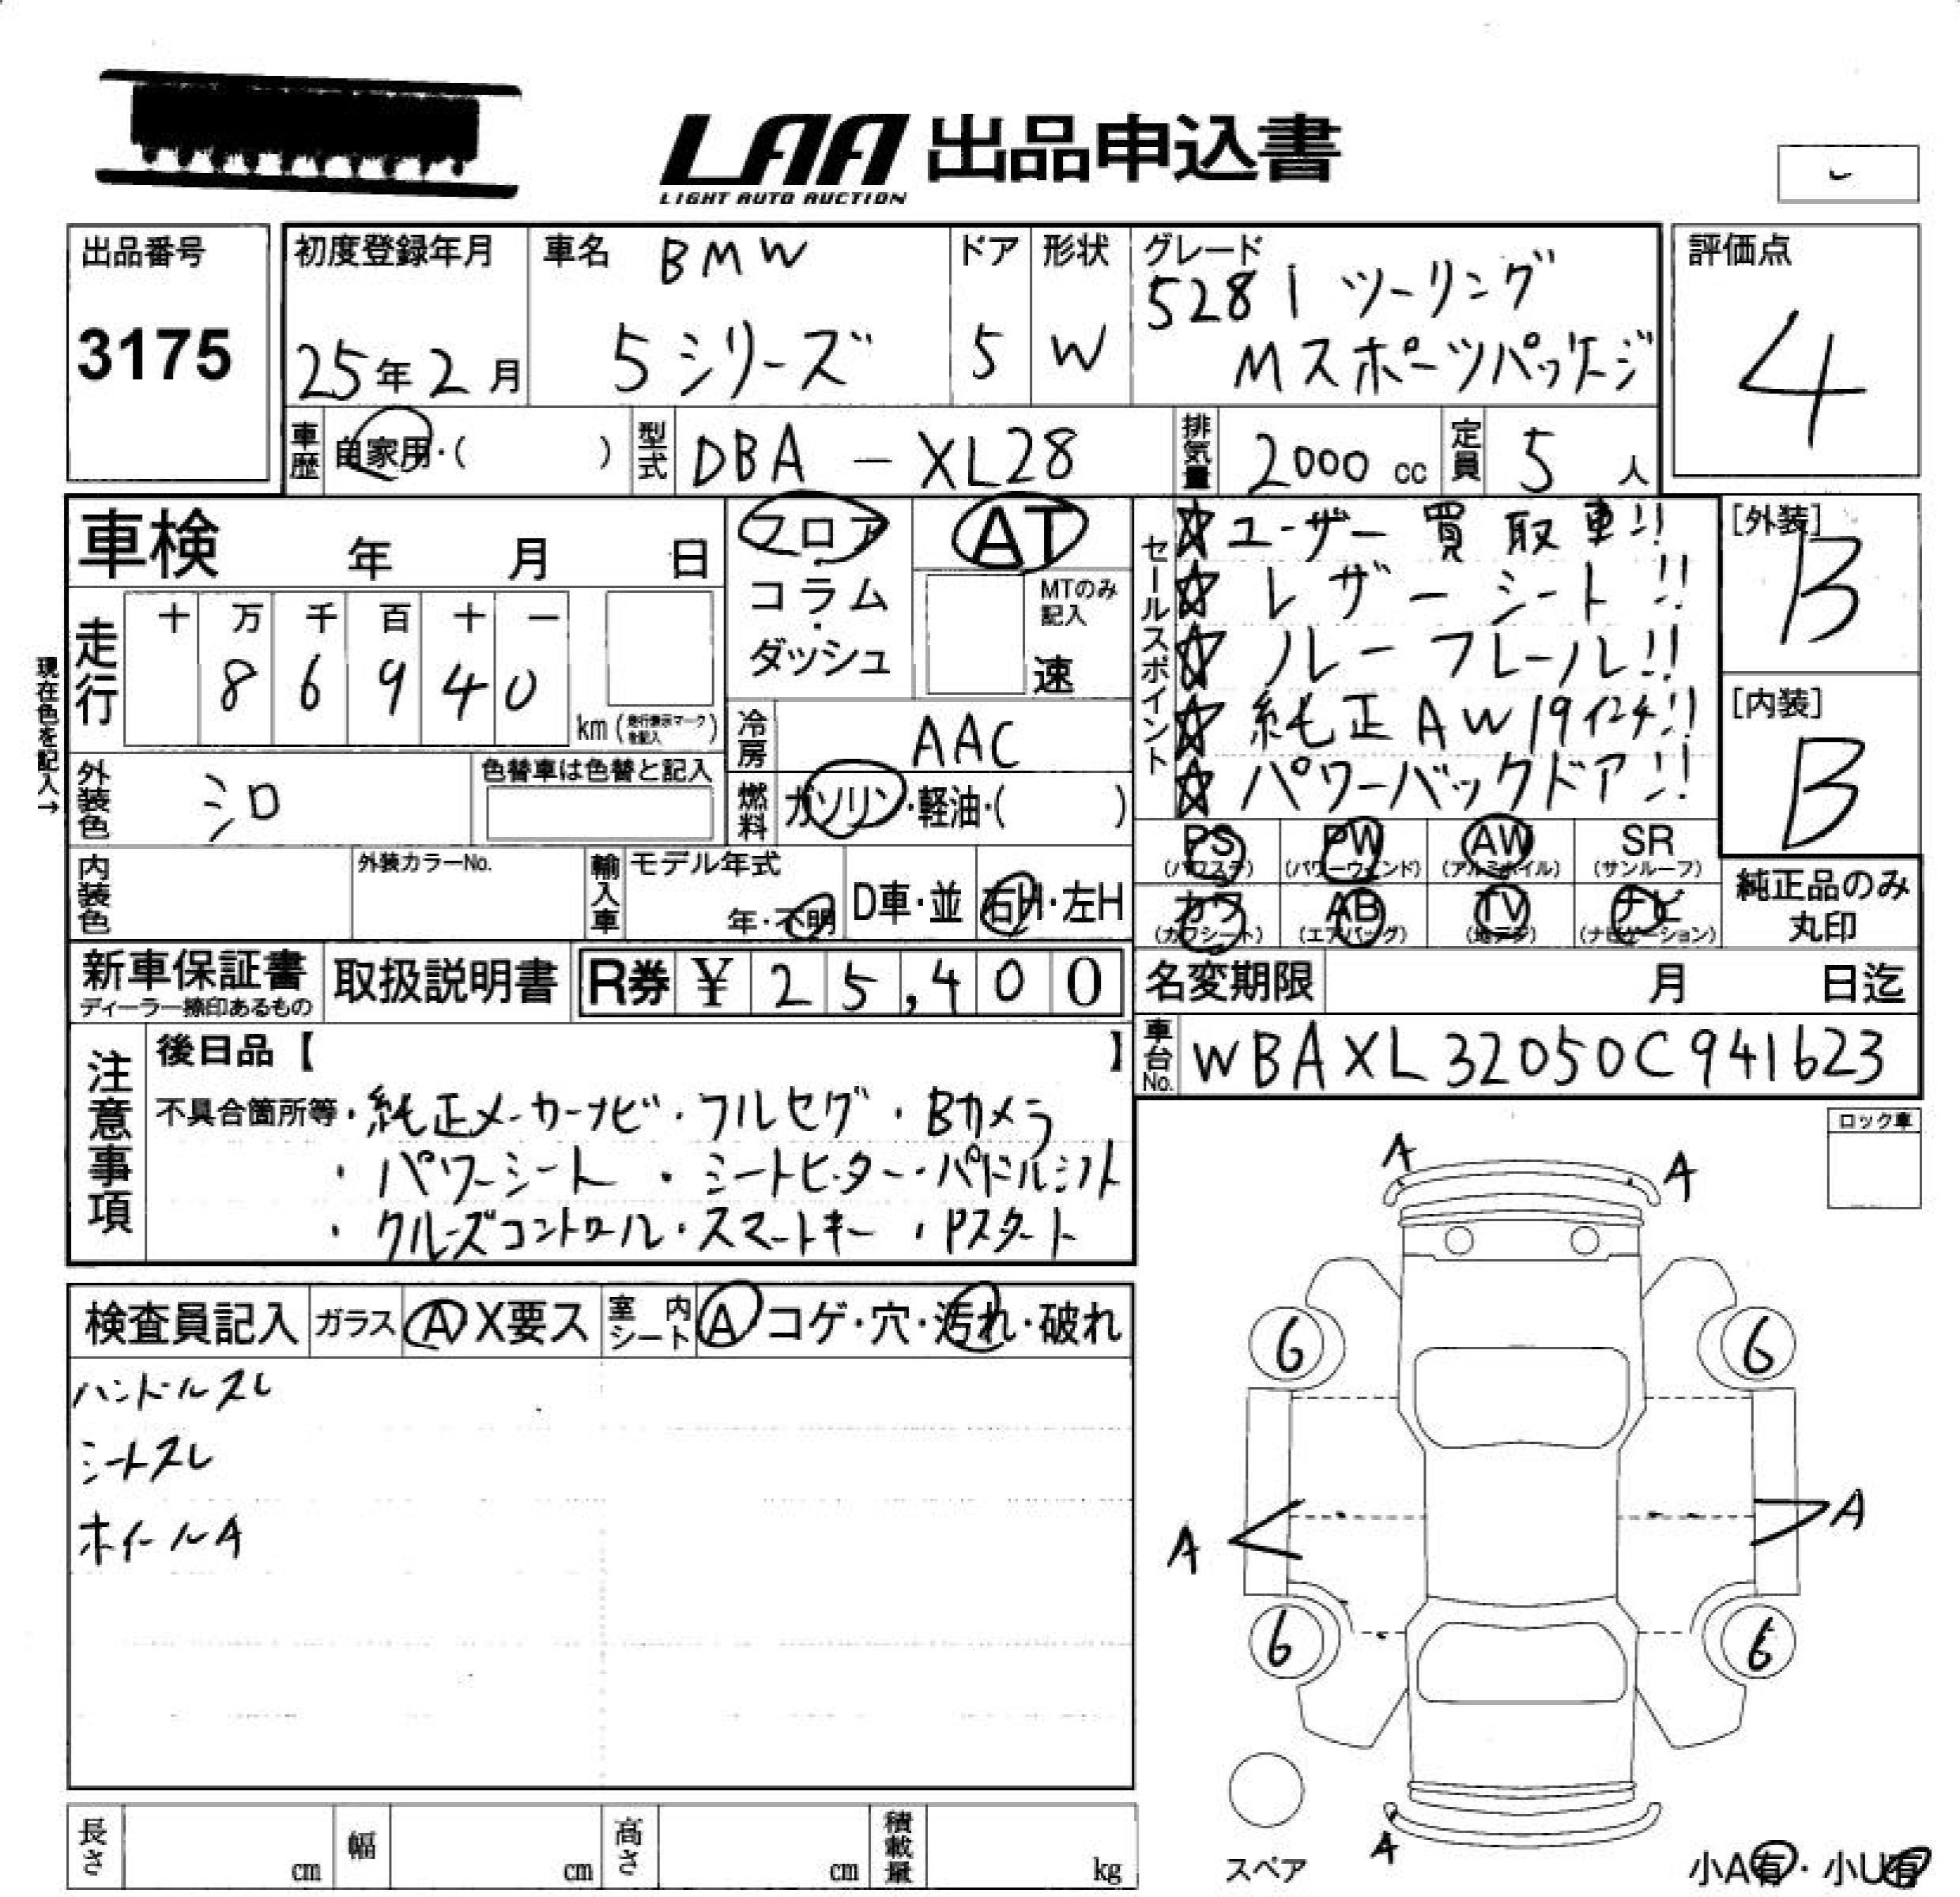 LAA 出品申込書
LIGHT AUTO AUCTION
出品番号
3175
初度登録年月
25年2月
車名 BMW
5シリーズ
ドア
5
形状
W
グレード
528i ツーリング
Mスポーツパッケージ
評価点
4
車歴 自家用・( )
型式 DBA - XL28
排気量 2000 cc
定員 5 人
車検 年 月 日
走行
十 万 千 百 十 一
8 6 9 4 0
km (走行表示マークを記入)
現在色を記入→
外装色 シロ
色替車は色替と記入
内装色
外装カラーNo.
フロア
・
コラム
・
ダッシュ
AT
MTのみ
記入
速
冷房 AAC
燃料 ガソリン・軽油・( )
輸入車
モデル年式
年・不明
D車・並
右H・左H
セールスポイント
☆ユーザー買取車!!
☆レザーシート!!
☆ルーフレール!!
☆純正AW19インチ!!
☆パワーバックドア!!
[外装]
B
[内装]
B
PS (パワステ)
PW (パワーウィンド)
AW (アルミホイル)
SR (サンルーフ)
カワ (カワシート)
AB (エアバッグ)
TV (地デジ)
ナビ (ナビゲーション)
純正品のみ
丸印
新車保証書
ディーラー捺印あるもの
取扱説明書
R券 ¥ 25,400
名変期限 月 日迄
車台No. WBAXL32050C941623
注意事項
後日品【 】
不具合箇所等・純正メーカーナビ・フルセグ・Bカメラ
・パワーシート・シートヒーター・パドルシフト
・クルーズコントロール・スマートキー・Pスタート
ロック車
検査員記入
ガラス A X要ス
室内シート A コゲ・穴・汚れ・破れ
ハンドルスレ
シートスレ
ホイールA
A
A
6
6
A
A
6
6
A
スペア
小A有・小U有
長さ cm
幅 cm
高さ cm
積載量 kg